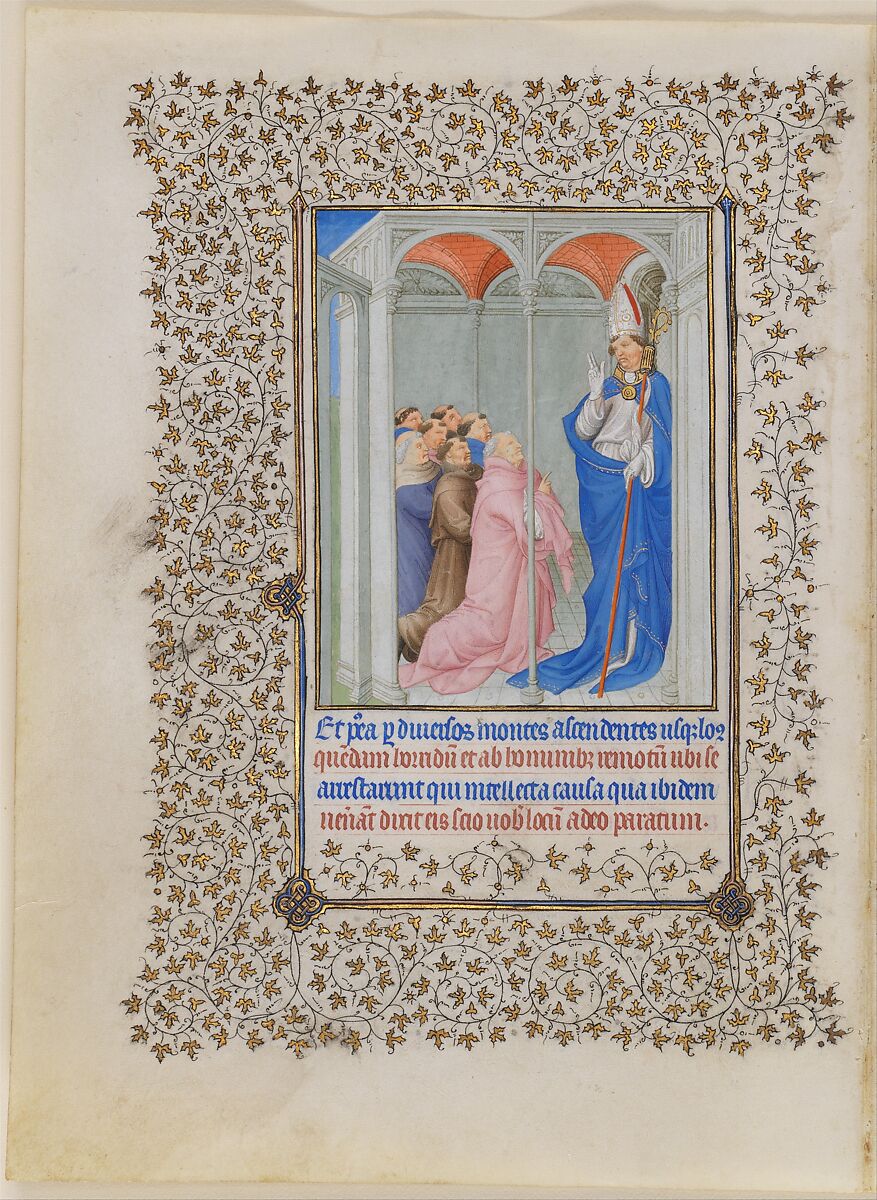 Et p̄ea ꝑ diuersos montes ascendentes usq; loꝝ
quēdam horridū et ab hominibꝫ remotū ubi se
arrestarunt qui intellecta causa qua ibidem
uen̄āt dixit eis scio uob̄ locū adeo paratum.